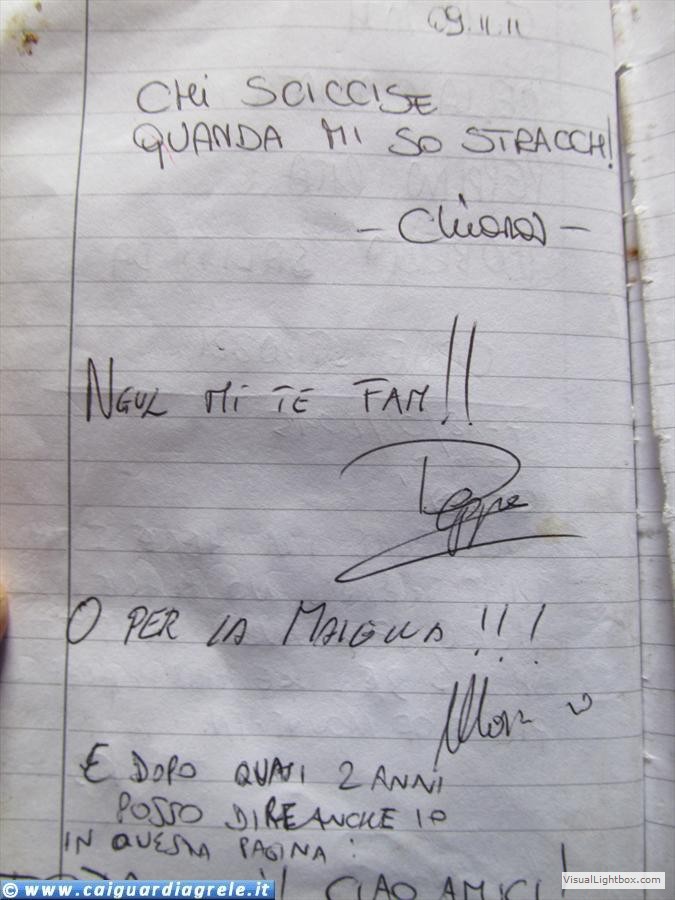 09.11.11
CHi SCICCISE
QUANDA MI SO STRACCH!
- Chiara -
NGUL Mi TE FAM!!
Peppe
O PER LA MAIELLA!!!
E DOPO QUASI 2 ANNI
POSSO DIRE ANCHE IO
IN QUESTA PAGINA:
CIAO AMICI!
© www.caiguardiagrele.it
VisualLightbox.com